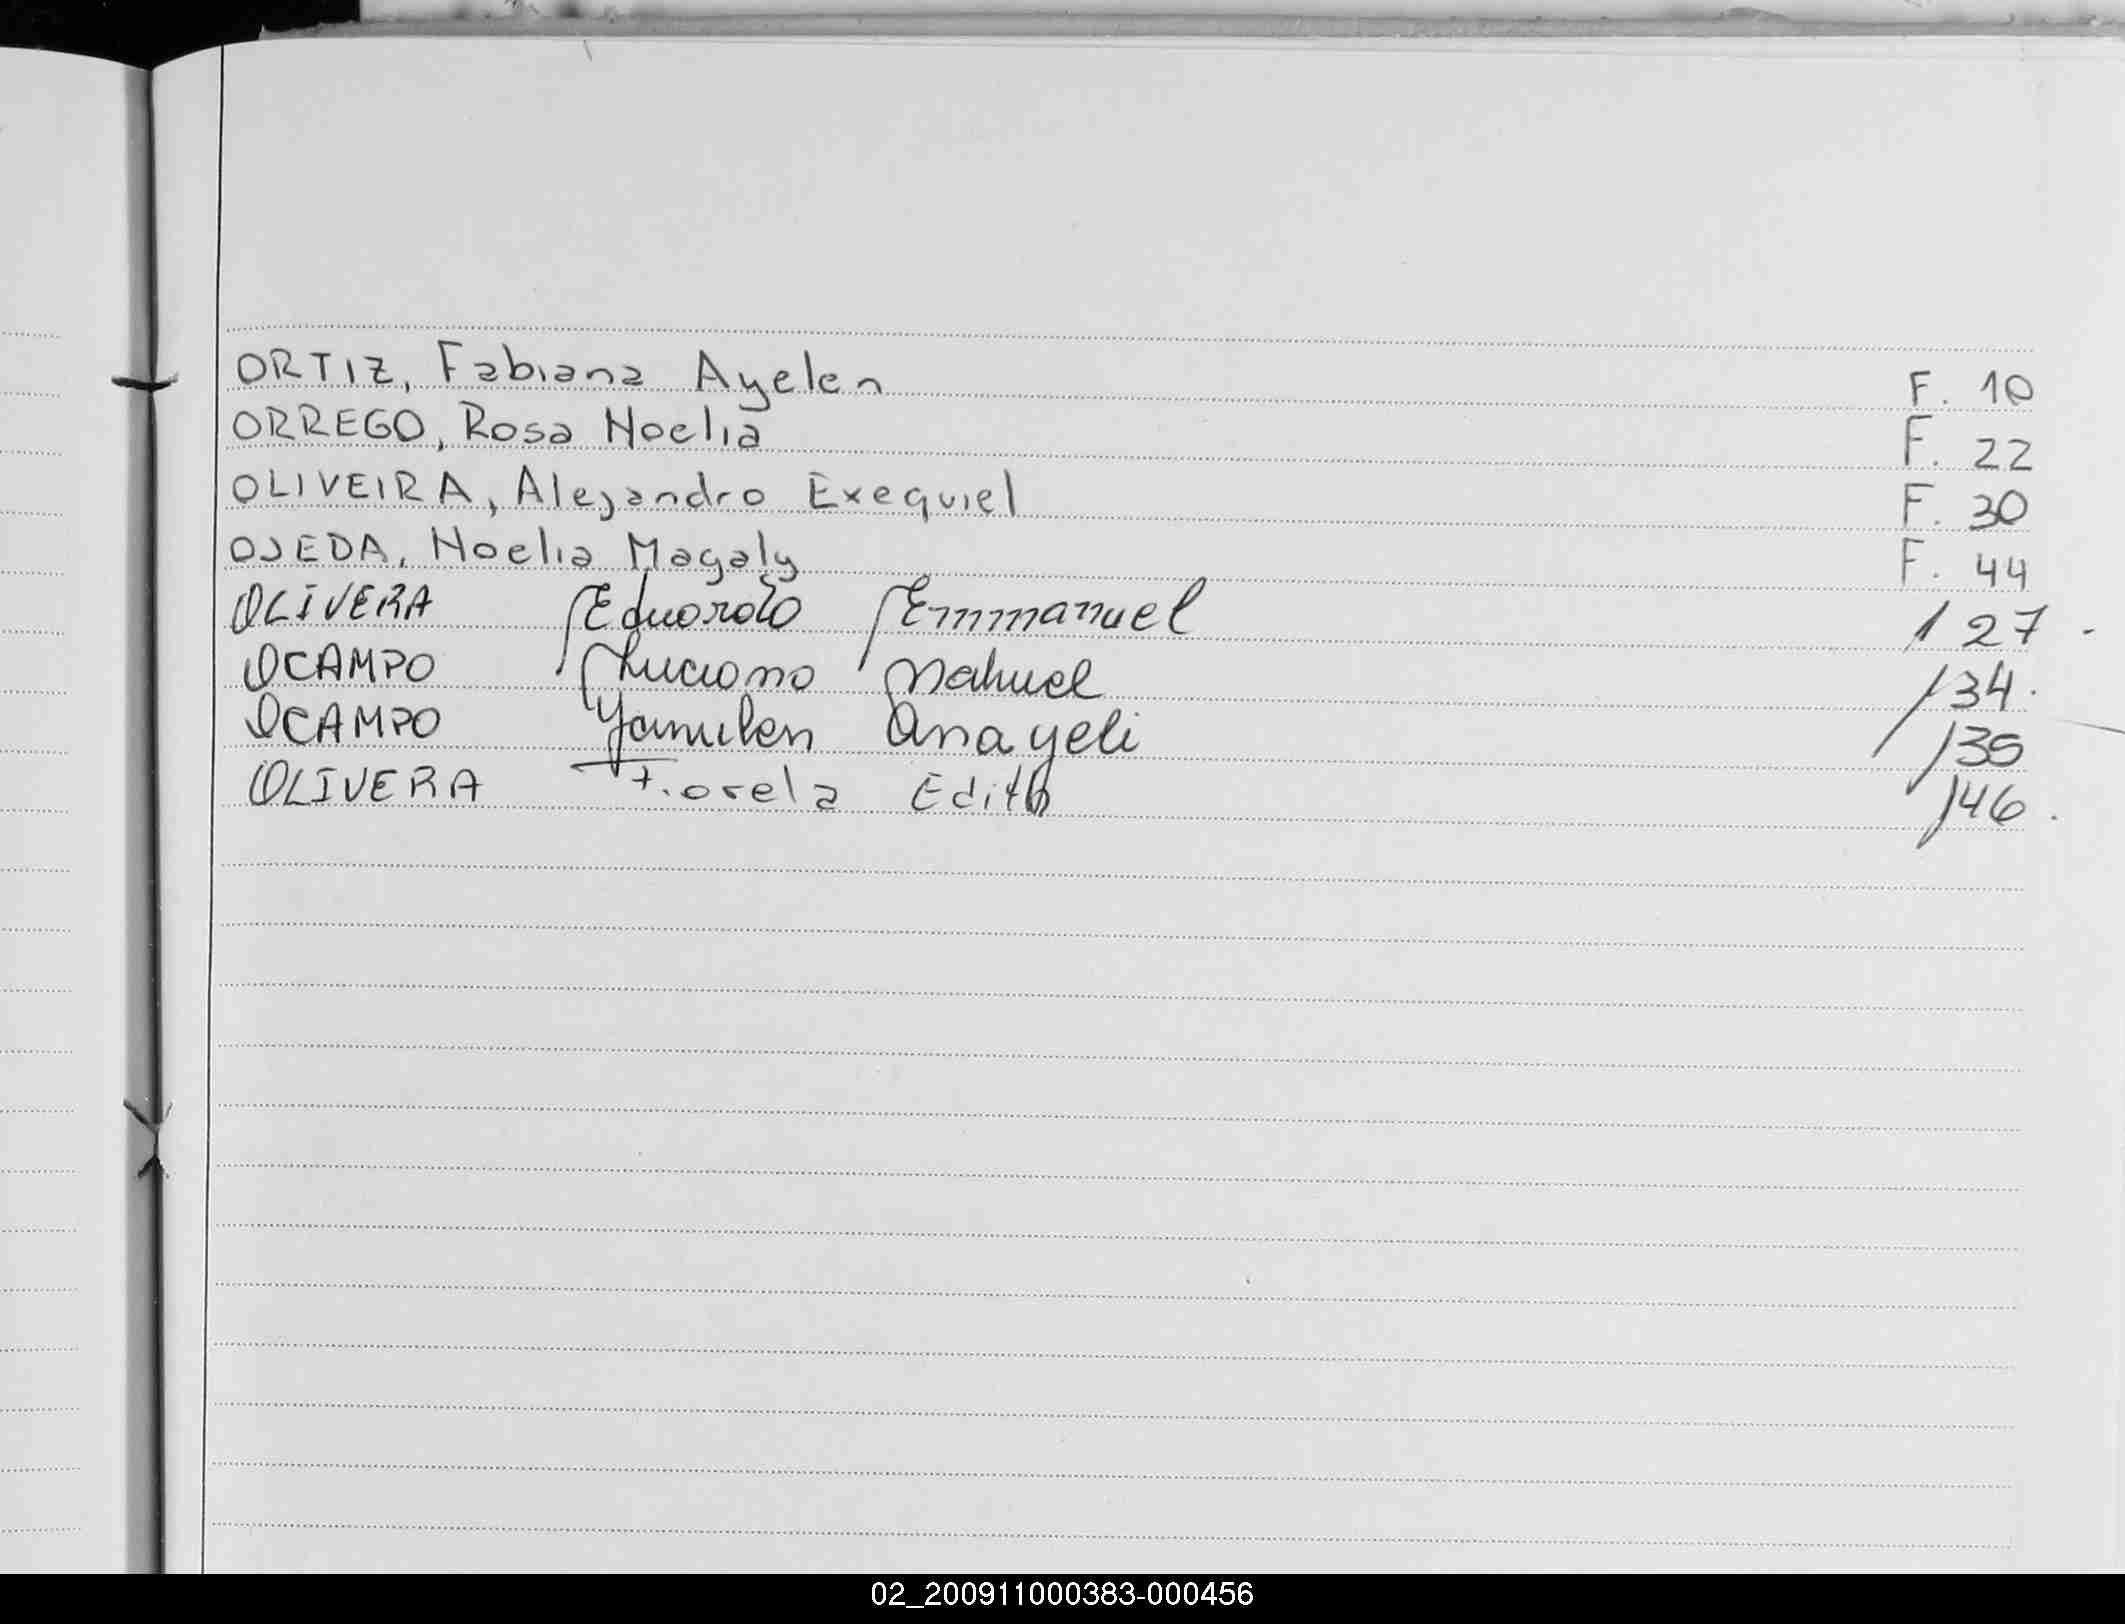 ORTIZ, Fabiana Ayelen F. 10
ORREGO, Rosa Noelia F. 22
OLIVEIRA, Alejandro Exequiel F. 30
OJEDA, Noelia Magaly F. 44
OLIVERA Eduardo Emmanuel 127
OCAMPO Luciano Nahuel 134
OCAMPO Yamilen Anayeli 135
OLIVERA Fiorela Edith 146
02_200911000383-000456